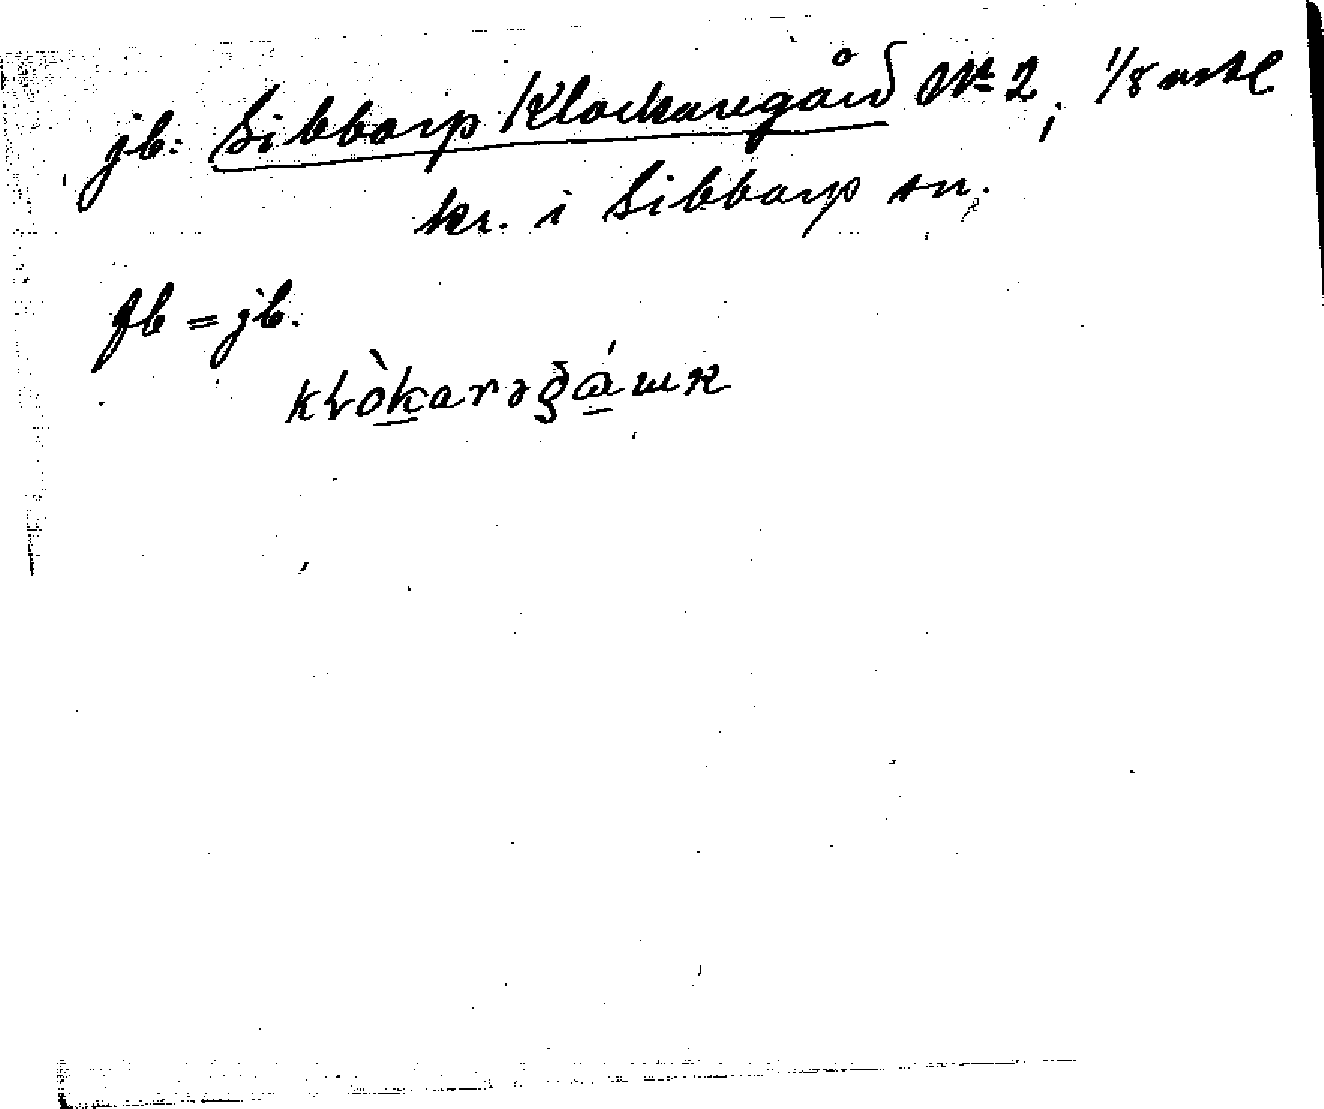 jb: Sibbarp Klockaregård № 2, 1/8 mtl
kr. i Sibbarp sn.
Jb = jb.